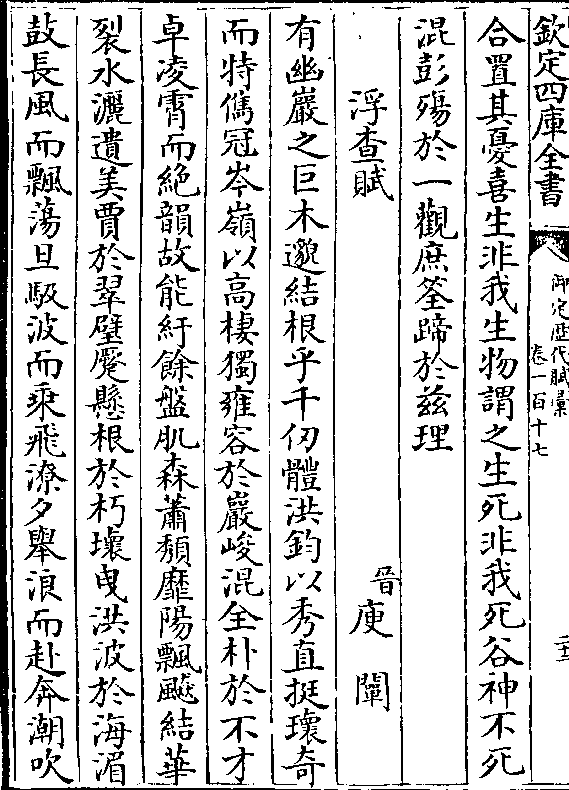 欽定四庫全書
御定歴代賦彙
卷一百十七
合置其憂喜生非我生物謂之生死非我死谷神不死
混彭殤於一觀庶筌蹄於兹理
浮查賦
晉庾闡
有幽巖之巨木邈結根乎千仞體洪鈞以秀直挺瓌奇
而特儁冠岑嶺以高棲獨雍容於巖峻混全朴於不才
卓凌霄而絶韻故能紆餘盤肌森蕭頺靡陽飄飇結華
裂水灑遺美賈於翠璧蹷懸根於朽壤曳洪波於海湄
鼓長風而飄蕩旦馭波而乗飛潦夕舉浪而赴奔潮吹